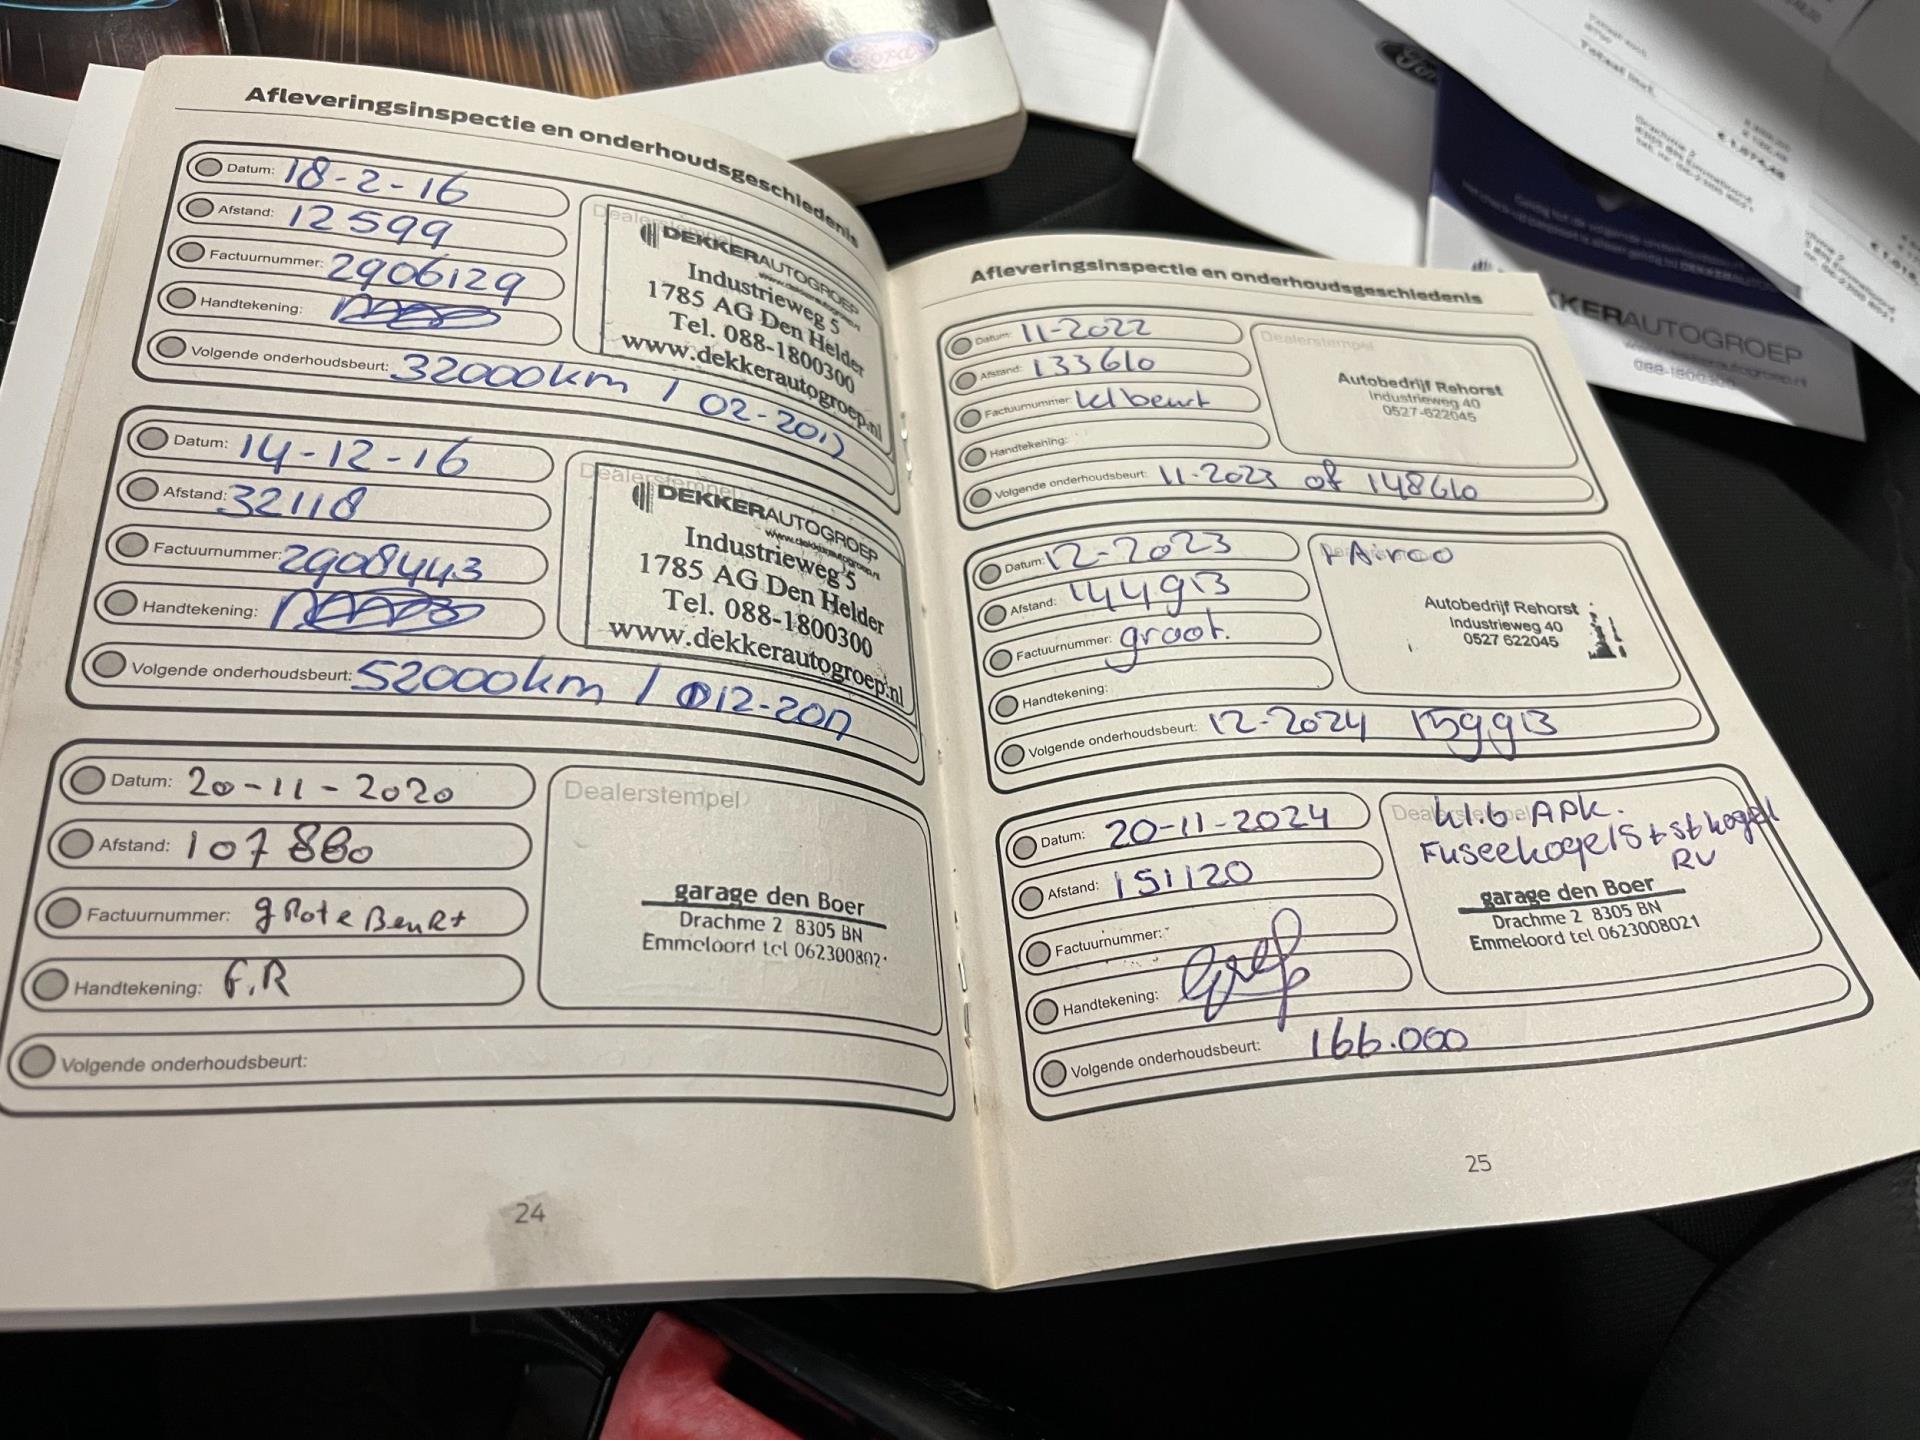 Ford
Afleveringsinspectie en onderhoudsgeschiedenis
Datum: 18-2-16
Afstand: 12599
Factuurnummer: 2906129
Handtekening:
Volgende onderhoudsbeurt: 32000km / 02-2017
Dealerstempel
DEKKERAUTOGROEP
www.dekkerautogroep.nl
Industrieweg 5
1785 AG Den Helder
Tel. 088-1800300
www.dekkerautogroep.nl
Datum: 14-12-16
Afstand: 32118
Factuurnummer: 2908443
Handtekening:
Volgende onderhoudsbeurt: 52000km / 012-2017
Dealerstempel
DEKKERAUTOGROEP
www.dekkerautogroep.nl
Industrieweg 5
1785 AG Den Helder
Tel. 088-1800300
www.dekkerautogroep.nl
Datum: 20-11-2020
Afstand: 107880
Factuurnummer: grote Beurt
Handtekening: F.R
Volgende onderhoudsbeurt:
Dealerstempel
garage den Boer
Drachme 2 8305 BN
Emmeloord tel 062300802
24
Afleveringsinspectie en onderhoudsgeschiedenis
Datum: 11-2022
Afstand: 133610
Factuurnummer: kl beurt
Handtekening:
Volgende onderhoudsbeurt: 11-2023 of 148610
Dealerstempel
Autobedrijf Rehorst
Industrieweg 40
0527-622045
Datum: 12-2023
Afstand: 144913
Factuurnummer: groot.
Handtekening:
Volgende onderhoudsbeurt: 12-2024 159913
+ Airco
Autobedrijf Rehorst
Industrieweg 40
0527 622045
Datum: 20-11-2024
Afstand: 151120
Factuurnummer:
Handtekening:
Volgende onderhoudsbeurt: 166.000
Dealerstempel
kl.b. APK.
Fuseekogels + st kogel
RV
garage den Boer
Drachme 2 8305 BN
Emmeloord tel 0623008021
25
KKERAUTOGROEP
088-1800300